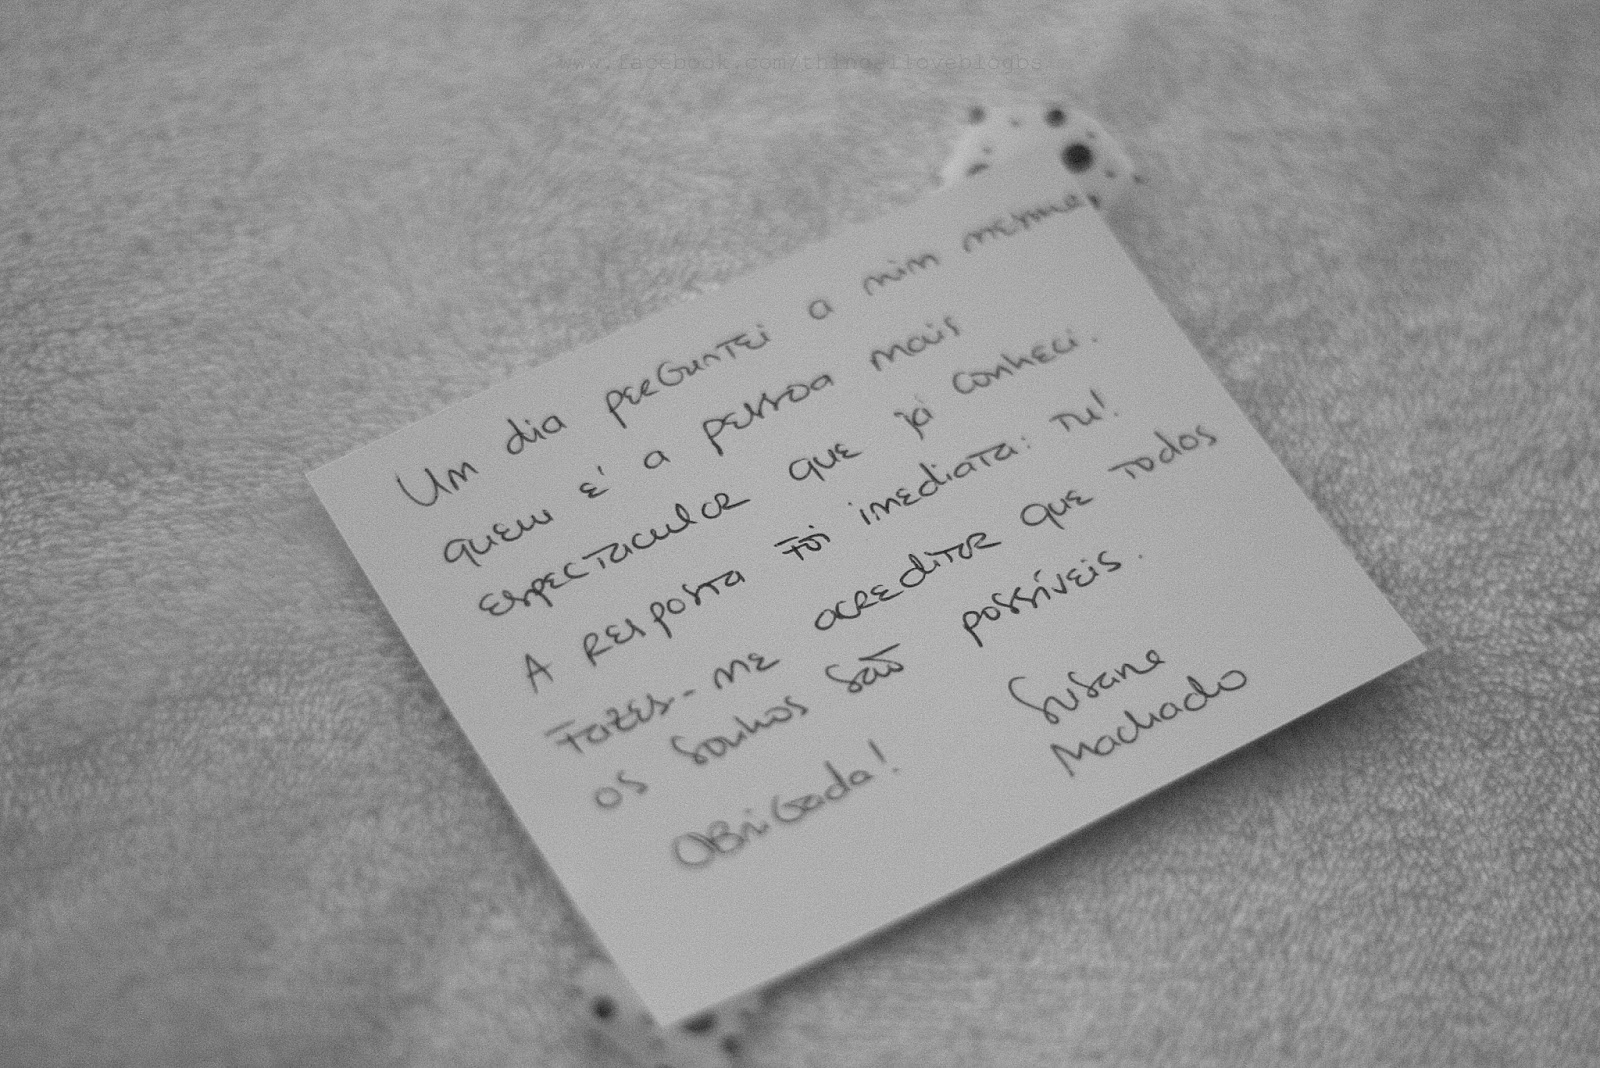 Um dia perguntei a mim mesma,
quem é a pessoa mais
espectacular que já conheci.
A resposta foi imediata: Tu!
Fazes-me acreditar que todos
os sonhos são possíveis.
Obrigada!
Susane
Machado